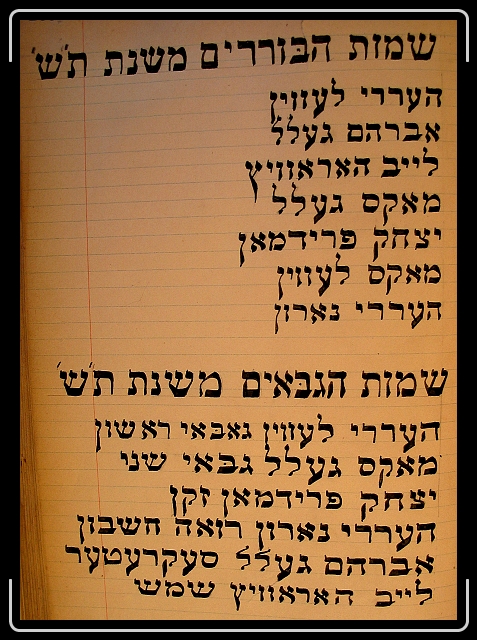 שמות הבוררים משנת ת'ש'
העררי לעווין
אברהם געלל
לייב האראוויץ
מאקס געלל
יצחק פרידמאן
מאקס לעווין
העררי גארון
שמות הגבאים משנת ת'ש'
העררי לעווין גאבאי ראשון
מאקס געלל גבאי שני
יצחק פרידמאן זקן
העררי גארון רואה חשבון
אברהם געלל סעקרעטער
לייב האראוויץ שמש